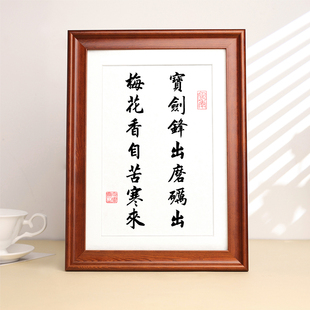 寶劍鋒出磨礪出
梅花香自苦寒來